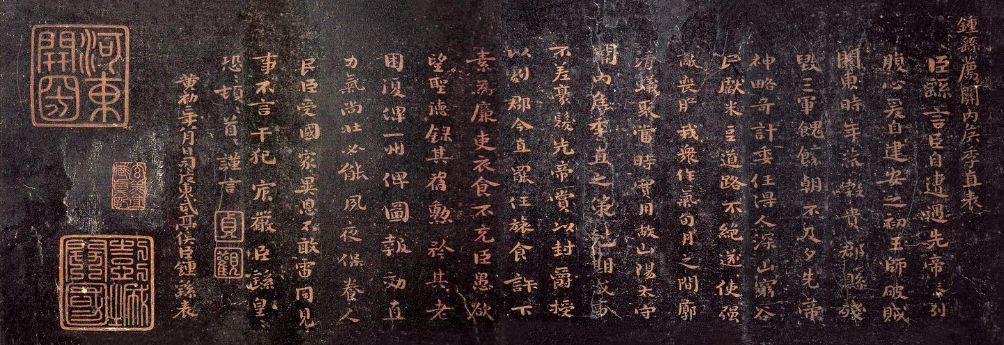 鍾繇薦關內侯季直表
臣繇言臣自遭遇先帝忝列
腹心爰自建安之初王師破賊
關東時年荒穀貴郡縣殘
毀三軍餽饟朝不及夕先帝
神略奇計委任得人深山窮谷
民獻米豆道路不絕遂使强
敵喪膽我衆作氣旬月之間廓
清蟻聚當時實用故山陽太守
關內侯季直之策尅期成事
不差豪髮先帝賞以封爵授
以劇郡今直罷任旅食許下
素為廉吏衣食不充臣愚欲
望聖德錄其舊勳矜其老
困復俾一州俾圖報効直
力氣尚壯必能夙夜保養人
民臣受國家異恩不敢雷同見
事不言干犯宸嚴臣繇皇
恐頓首謹言
貞
觀
黃初二年八月日司徒東武亭侯臣鍾繇表
河東